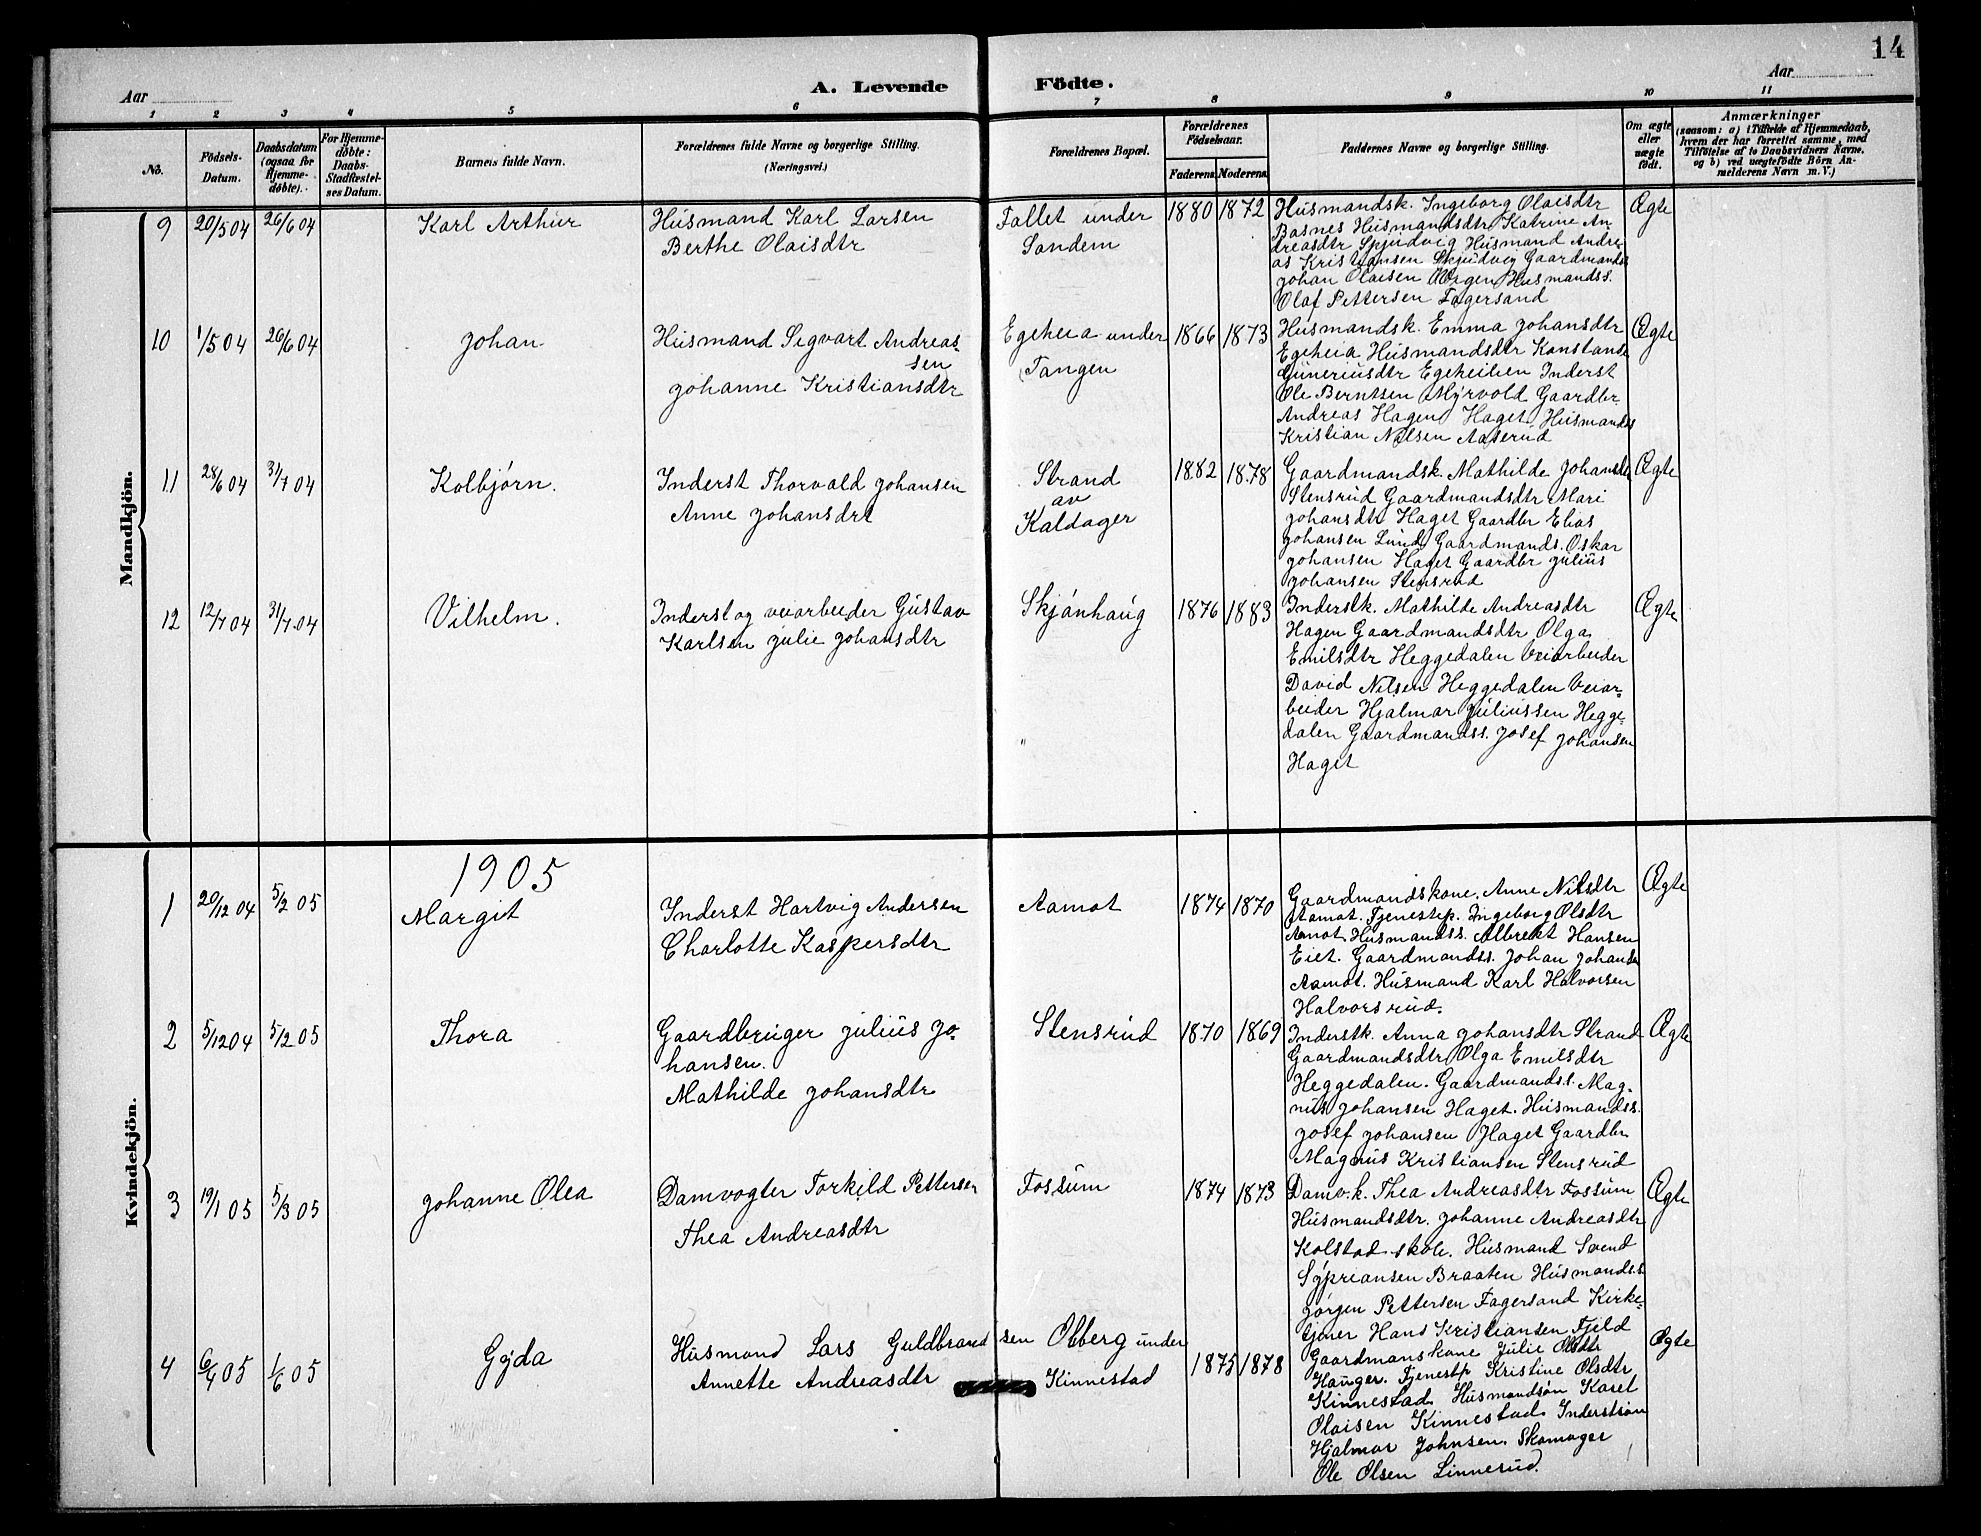 14
Aar
A. Levende Födte.
Aar
1 2 3 4 5 6 7 8 9 10 11
No.
Födsels-
Datum.
Daabsdatum
(ogsaa for
Hjemme-
döbte).
For Hjemme-
döbte:
Daabs-
Stadfæstel-
ses Datum.
Barnets fulde Navn.
Forældrenes fulde Navne og borgerlige Stilling.
(Næringsvei.)
Forældrenes Bopæl.
Forældrenes
Födselsaar.
Faderens. Moderens.
Faddernes Navne og borgerlige Stilling.
Om ægte
eller
uægte
födt.
Anmærkninger
(saasom: a) i Tilfælde af Hjemmedaab,
hvem der har forrettet samme, med
Tilföielse af to Daabsvidners Navne,
og b) ved uægtefödte Börn An-
melderens Navn m. V.)
Mandkjön.
9 20/5 04 26/6 04 Karl Arthur
Husmand Karl Larsen
Berthe Olaisdtr
Fallet under
Sandem
1880 1872
Husmandsk. Ingeborg Olaisdtr
Basnes Husmandsdtr Katrine An
dreasdtr Spjudvig Husmand Andre
as Kristiansen Skjudvig Gaardmands
Johan Olaisen Husmandss.
Olaf Pettersen Fagersand
Ægte
10 1/5 04 26/6 04 Johan
Husmand Segvart Andreas-
sen
Johanne Kristiansdtr
Egeheia under
Tangen
1866 1873
Husmandsk. Emma Johansdtr
Egeheia Husmandsdtr Konstanse
Guneriusdtr Egeheiien Inderst
Ole Berntsen Myrvold Gaardbr
Andreas Hagen Haget Husmands
Kristian Nilsen Aaserud
Ægte
11 28/6 04 31/7 04 Kolbjørn.
Inderst Thorvald Johansen
Anne Johansdrt
Strand
av
Kaldager
1882 1878
Gaardmandsk. Mathilde Johansdtr
Stensrud Gaardmandsdtr Mari
Johansdtr Haget Gaardbr Elias
Johansen Lund Gaardmands. Oskar
Johansen Haget Gaardbr Julius
Johansen Stensrud
Ægte
12 12/7 04 31/7 04 Vilhelm.
Inderst og veiarbeider Gustav
Karlsen Julie Johansdtr
Skjønhaug
1876 1883
Inderstk. Mathilde Andreasdtr
Hagen Gaardmandsdtr Olga
Emilsdtr Heggedalen Veiarbeider
David Nilsen Heggedalen Veiar-
beider Hjalmar Juliussen Hegge-
dalen Gaardmandss. Josef Johansen
Haget
Ægte
Kvindekjön.
1905
1 20/12 04 5/2 05 Margit
Inderst Hartvig Andersen
Charlotte Kaspersdtr
Aamot
1874 1870
Gaardmandskone. Anne Nilsdtr
Aamot. Tjenestep. Ingeborg Olsdtr
Amot. Husmandss. Albrekt Hansen
Eiet. Gaardmandss. Johan Johanse
Aamot. Husmand Karl Halvorsen
Halvorsrud.
Ægte
2 5/12 04 5/2 05 Thora
Gaardbruger Julius Jo-
hansen.
Mathilde Johansdtr
Stensrud
1870 1869
Inderstk. Anna Johansdtr Strand
Gaardmandsdtr Olga Emilsdtr
Heggedalen. Gaardmandss. Mag-
nus Johansen Haget. Husmandss.
Josef Johansen Haget Gaardbr
Magnus Kristiansen Stensrud
Ægte
3 19/1 05 5/3 05 Johanne Olea
Damvogter Torkild Pettersen
Thea Andreasdtr
Fossum
1874 1873
Damv.k. Thea Andreasdtr Fossum
Husmandsdtr. Johanne Andreasdtr
Kolstad skole. Husmand Svend
Sypriansen Braaten Husmands.s.
Jørgen Pettersen Fagersand Kirke-
tjener Hans Kristiansen Fjeld
Ægte
4 6/4 05 1/6 05 Gyda
Husmand Lars Guldbrandsen
Annette Andreasdtr
Obberg under
Kinnestad
1875 1878
Gaardmanskone Julie Olsdtr
Hauger. Tjenestp Kristine Olsdtr
Kinnestad Husmandsøn Karel
Olaisen Kinnestad Inderstsøn
Hjalmar Johnsen. Skomager
Ole Olsen Linnerud.
Ægte